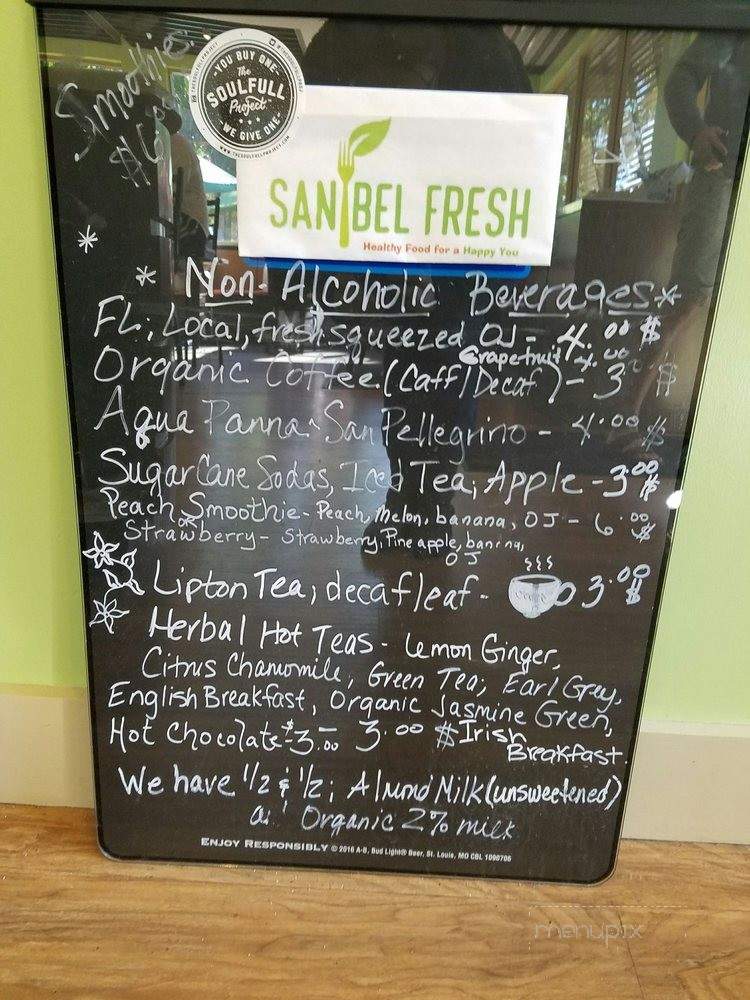 Smoothies
$6.00
YOU BUY ONE
The
SOULFULL
Project
WE GIVE ONE
WWW.THESOULFULLPROJECT.COM
SANIBEL FRESH
Healthy Food for a Happy You
* Non-Alcoholic Beverages *
FL; Local, fresh squeezed OJ - 4.00 $
Grapefruit 4.00
Organic Coffee (Caff/Decaf) - 3 $
Aqua Panna San Pellegrino - 4.00 $
Sugar Cane Sodas, Iced Tea, Apple - 3.00 $
Peach Smoothie - Peach, melon, banana, OJ - 6.00 $
or
Strawberry - Strawberry, Pineapple, banana,
OJ
Lipton Tea, decaf leaf - 3.00 $
Herbal Hot Teas - Lemon Ginger,
Citrus Chamomile, Green Tea, Earl Grey,
English Breakfast, Organic Jasmine Green,
Hot Chocolate $3.00 3.00 $ Irish
Breakfast
We have 1/2 & 1/2; Almond Milk (unsweetened)
Organic 2% milk
ENJOY RESPONSIBLY © 2016 A-B, Bud Light® Beer, St. Louis, MO CBL 1098706
menupix